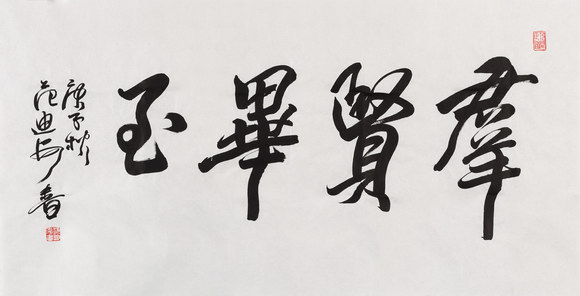 羣賢畢至
庚子秋
范迪安書